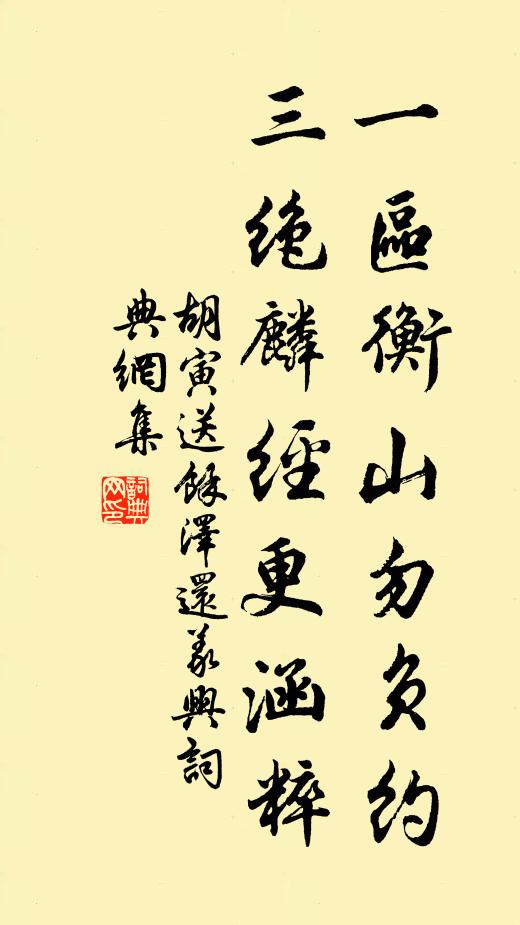 一區衡山勿負約
三絶麟經更涵粹
胡寅送餘澤還義興詞
典網集
詞典
网印